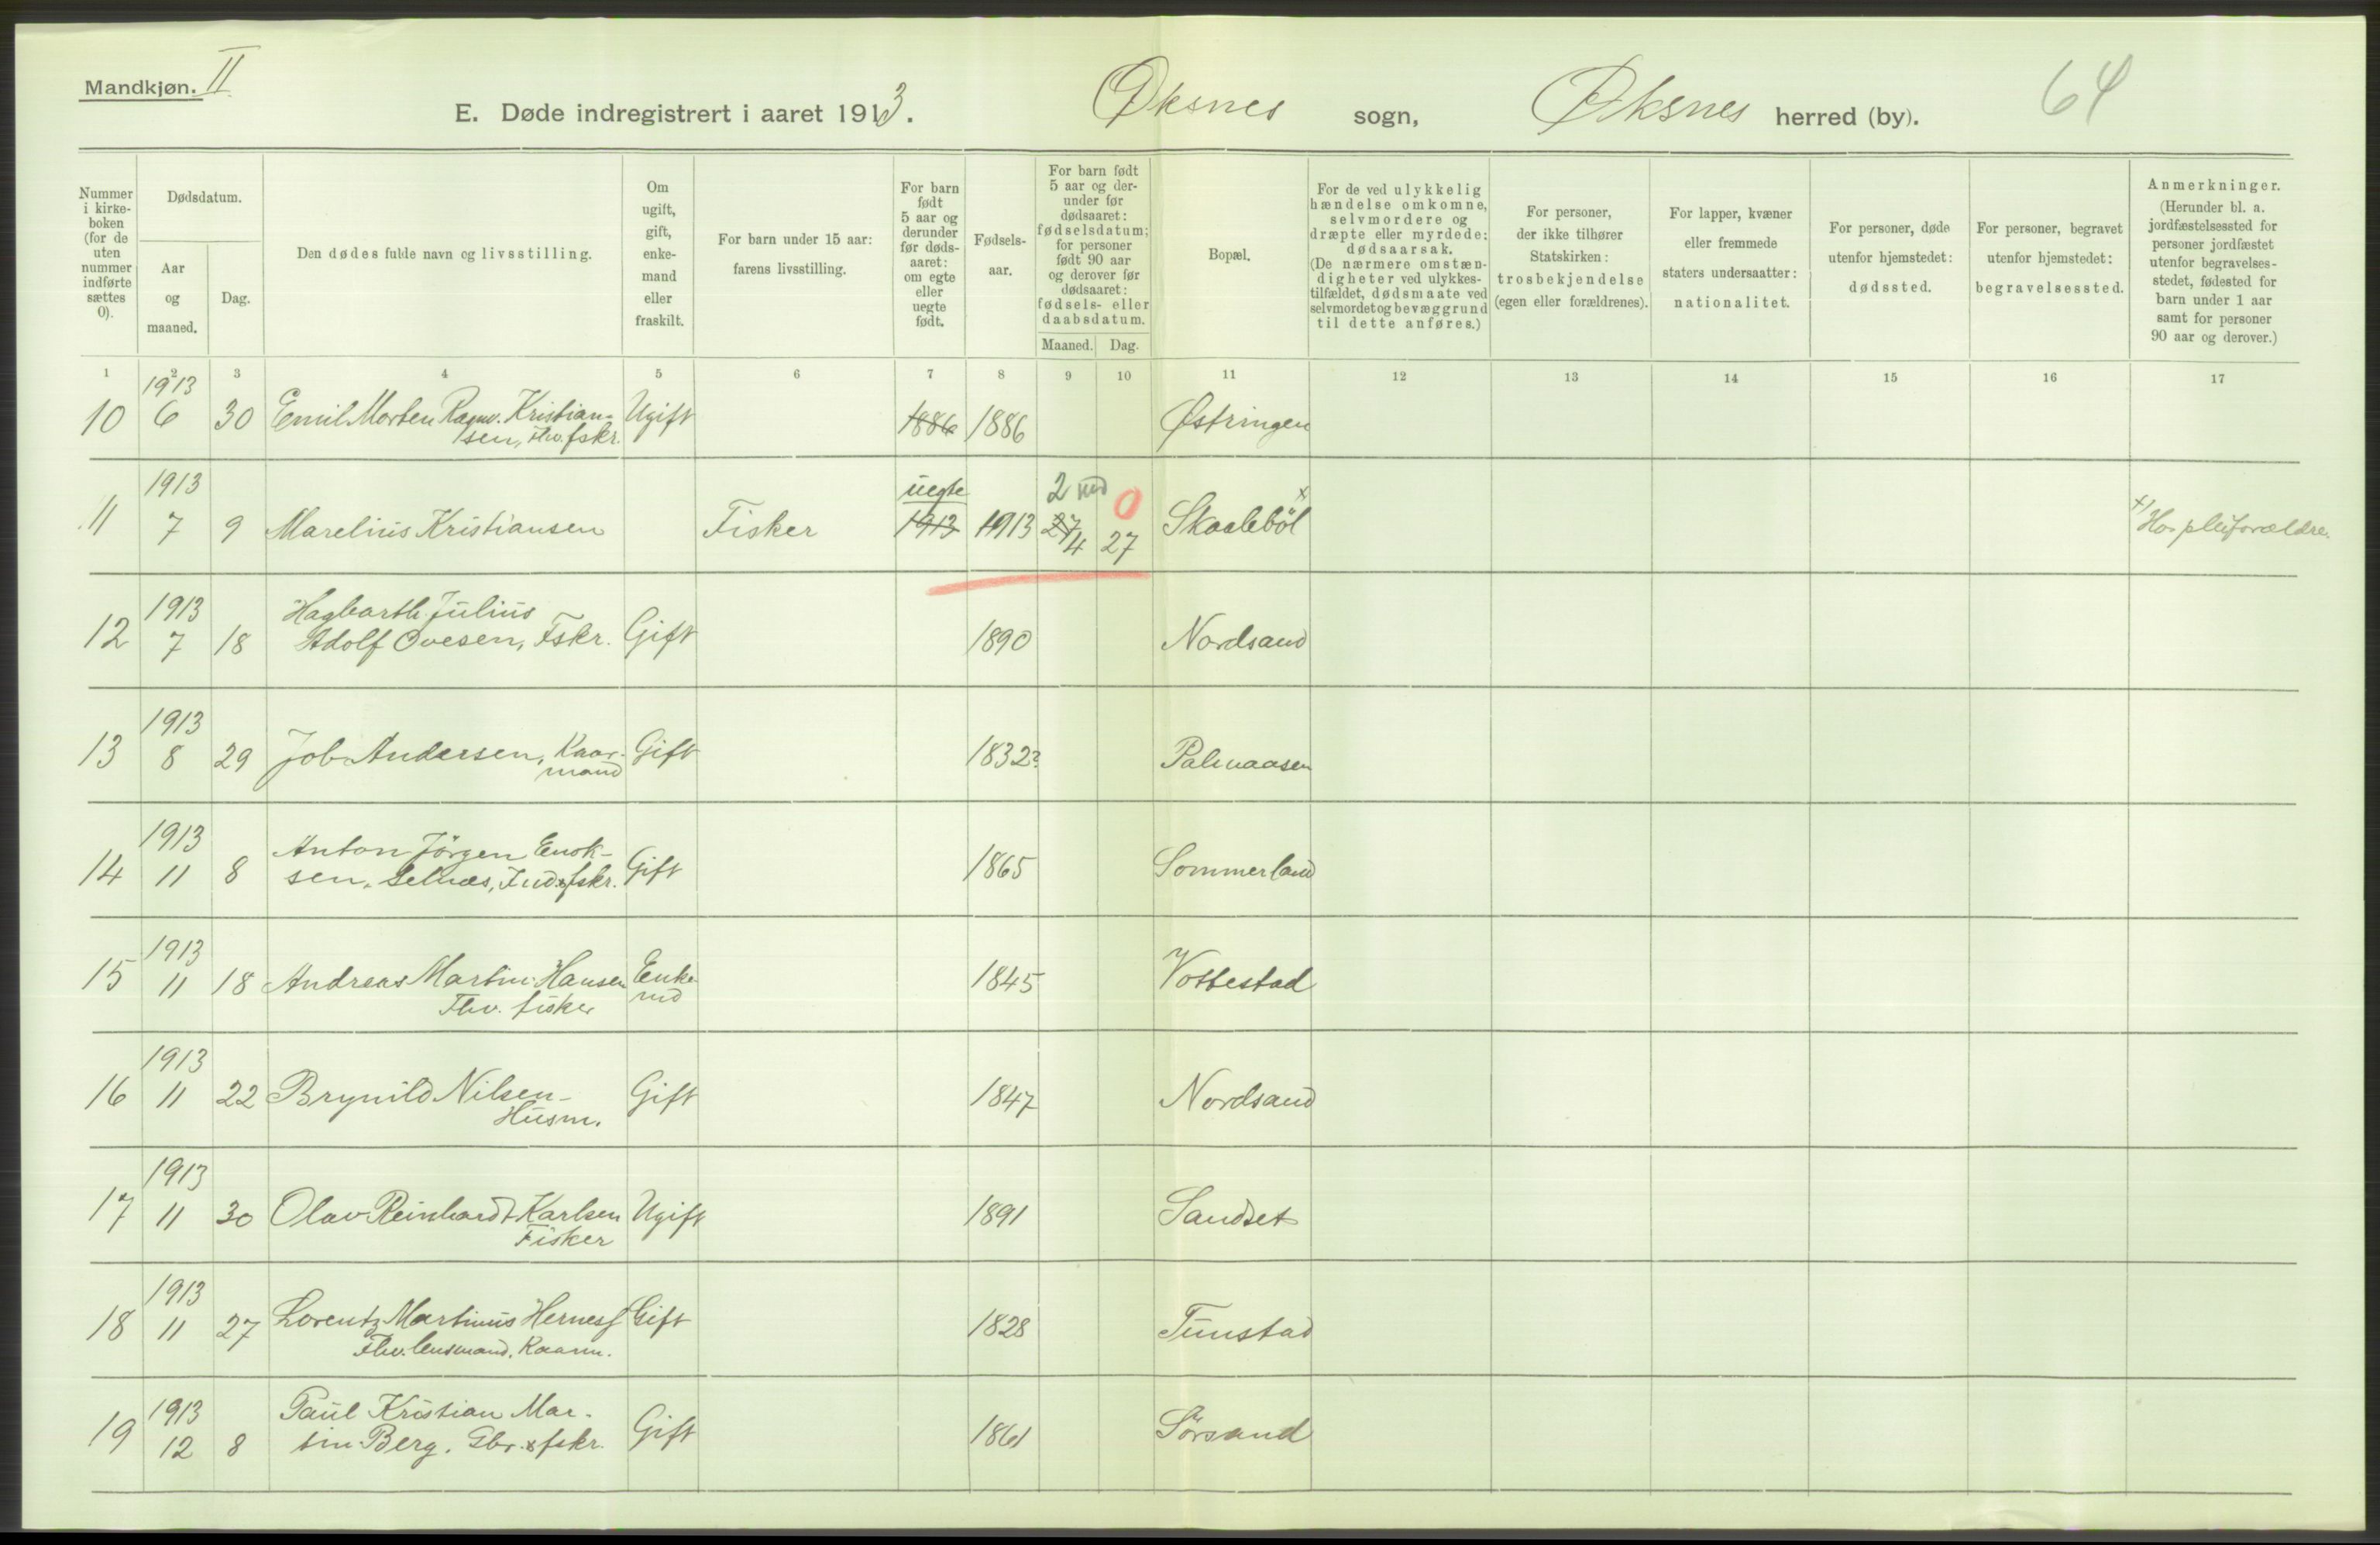 Mandkjøn. II
E. Døde indregistrert i aaret 1913. Øksnes sogn, Øksnes herred (by). 64
Nummer i kirke-boken (for de uten nummer indførte sættes 0).
Dødsdatum.
Aar og maaned.
Dag.
Den dødes fulde navn og livsstilling.
Om ugift, gift, enke-mand eller fraskilt.
For barn under 15 aar: farens livsstilling.
For barn født 5 aar og derunder før døds-aaret: om egte eller uegte født.
Fødsels-aar.
For barn født 5 aar og der-under før dødsaaret: fødselsdatum; for personer født 90 aar og derover før dødsaaret: fødsels- eller daabsdatum.
Maaned. Dag.
Bopæl.
For de ved ulykkelig hændelse omkomne, selvmordere og dræpte eller myrdede: dødsaarsak. (De nærmere omstæn-digheter ved ulykkes-tilfældet, dødsmaate ved selvmordet og bevæggrund til dette anføres.)
For personer, der ikke tilhører Statskirken: trosbekjendelse (egen eller forældrenes).
For lapper, kvæner eller fremmede staters undersaatter: nationalitet.
For personer, døde utenfor hjemstedet: dødssted.
For personer, begravet utenfor hjemstedet: begravelsessted.
Anmerkninger. (Herunder bl. a. jordfæstelsessted for personer jordfæstet utenfor begravelses-stedet, fødested for barn under 1 aar samt for personer 90 aar og derover.)
1 2 3 4 5 6 7 8 9 10 11 12 13 14 15 16 17
1913
10 6 30 Emil Morten Ragnv. Kristian- Ugift 1886 1886 Østringen
sen, fhv. fskr.
1913 uegte 2 md 0
11 7 9 Marelius Kristiansen Fisker 1913 1913 27 4 27 Skaaleböl x
x) Hos pleiforældre.
1913 Hagbarth Julius
12 7 18 Adolf Ovesen, Fskr. Gift 1890 Nordsand
1913
13 8 29 Job Andersen, Kaar- Gift 1832?
mand
1913 Anton Jörgen Enok-
14 11 8 sen, Selnæs, Ind&fskr. Gift 1865 Sommerland
1913
15 11 18 Andreas Martin Hansen Enke 1845 Vottestad
Fhv. fisker md
1913
16 11 22 Brynild Nilsen- Gift 1847 Nordsand
Husm.
1913
17 11 30 Olav Reinhardt Karlsen Ugift 1891 Sandset
Fisker
1913
18 11 27 Lorentz Martinus Hernes Gift 1828 Tunstad
Fhv. lensmand, Kaarm.
1913 Paul Kristian Mar-
19 12 8 tin Berg. Gbr. & fskr. Gift 1861 Sörsand